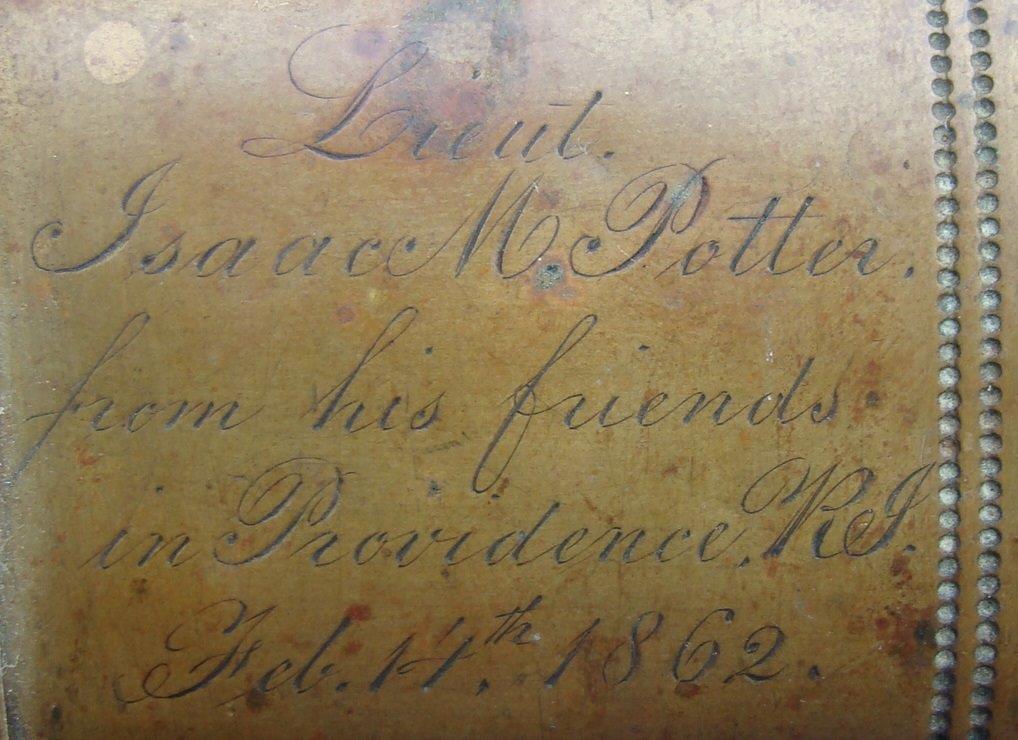 Lieut.
Isaac M. Potter.
from his friends
in Providence, R.I.
Feb. 14th, 1862.